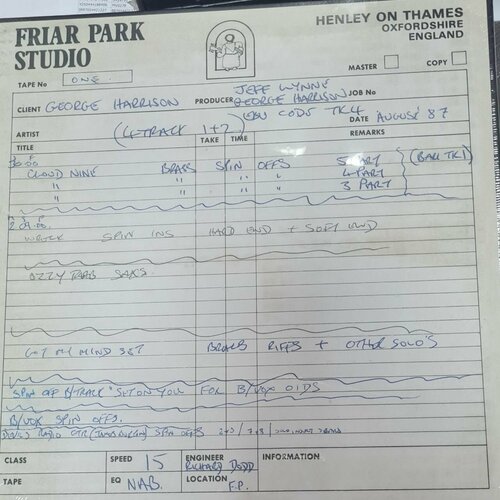 FRIAR PARK
STUDIO
HENLEY ON THAMES
OXFORDSHIRE
ENGLAND
MASTER
COPY
TAPE NO ONE.
CLIENT GEORGE HARRISON PRODUCER JEFF LYNNE GEORGE HARRISON JOB NO
CODE TK4
ARTIST (4-TRACK 1+2) DATE AUGUST 87
TITLE TAKE TIME REMARKS
CLOUD NINE BRASS SPIN OFFS 5 PART
" " " " 4 PART
" " " " 3 PART
WRECK SPIN INS HARD END + SOFT END
SAXS
GOT MY MIND SET BRASS RIFFS + OTHER SOLO'S
SPIN OFF B/TRACK "SET ON YOU FOR B/VOX
B/VOX SPIN OFFS.
RADIO SPIN OFFS
CLASS SPEED 15 ENGINEER RICHARD DODD INFORMATION
TAPE EQ NAB. LOCATION F.P.